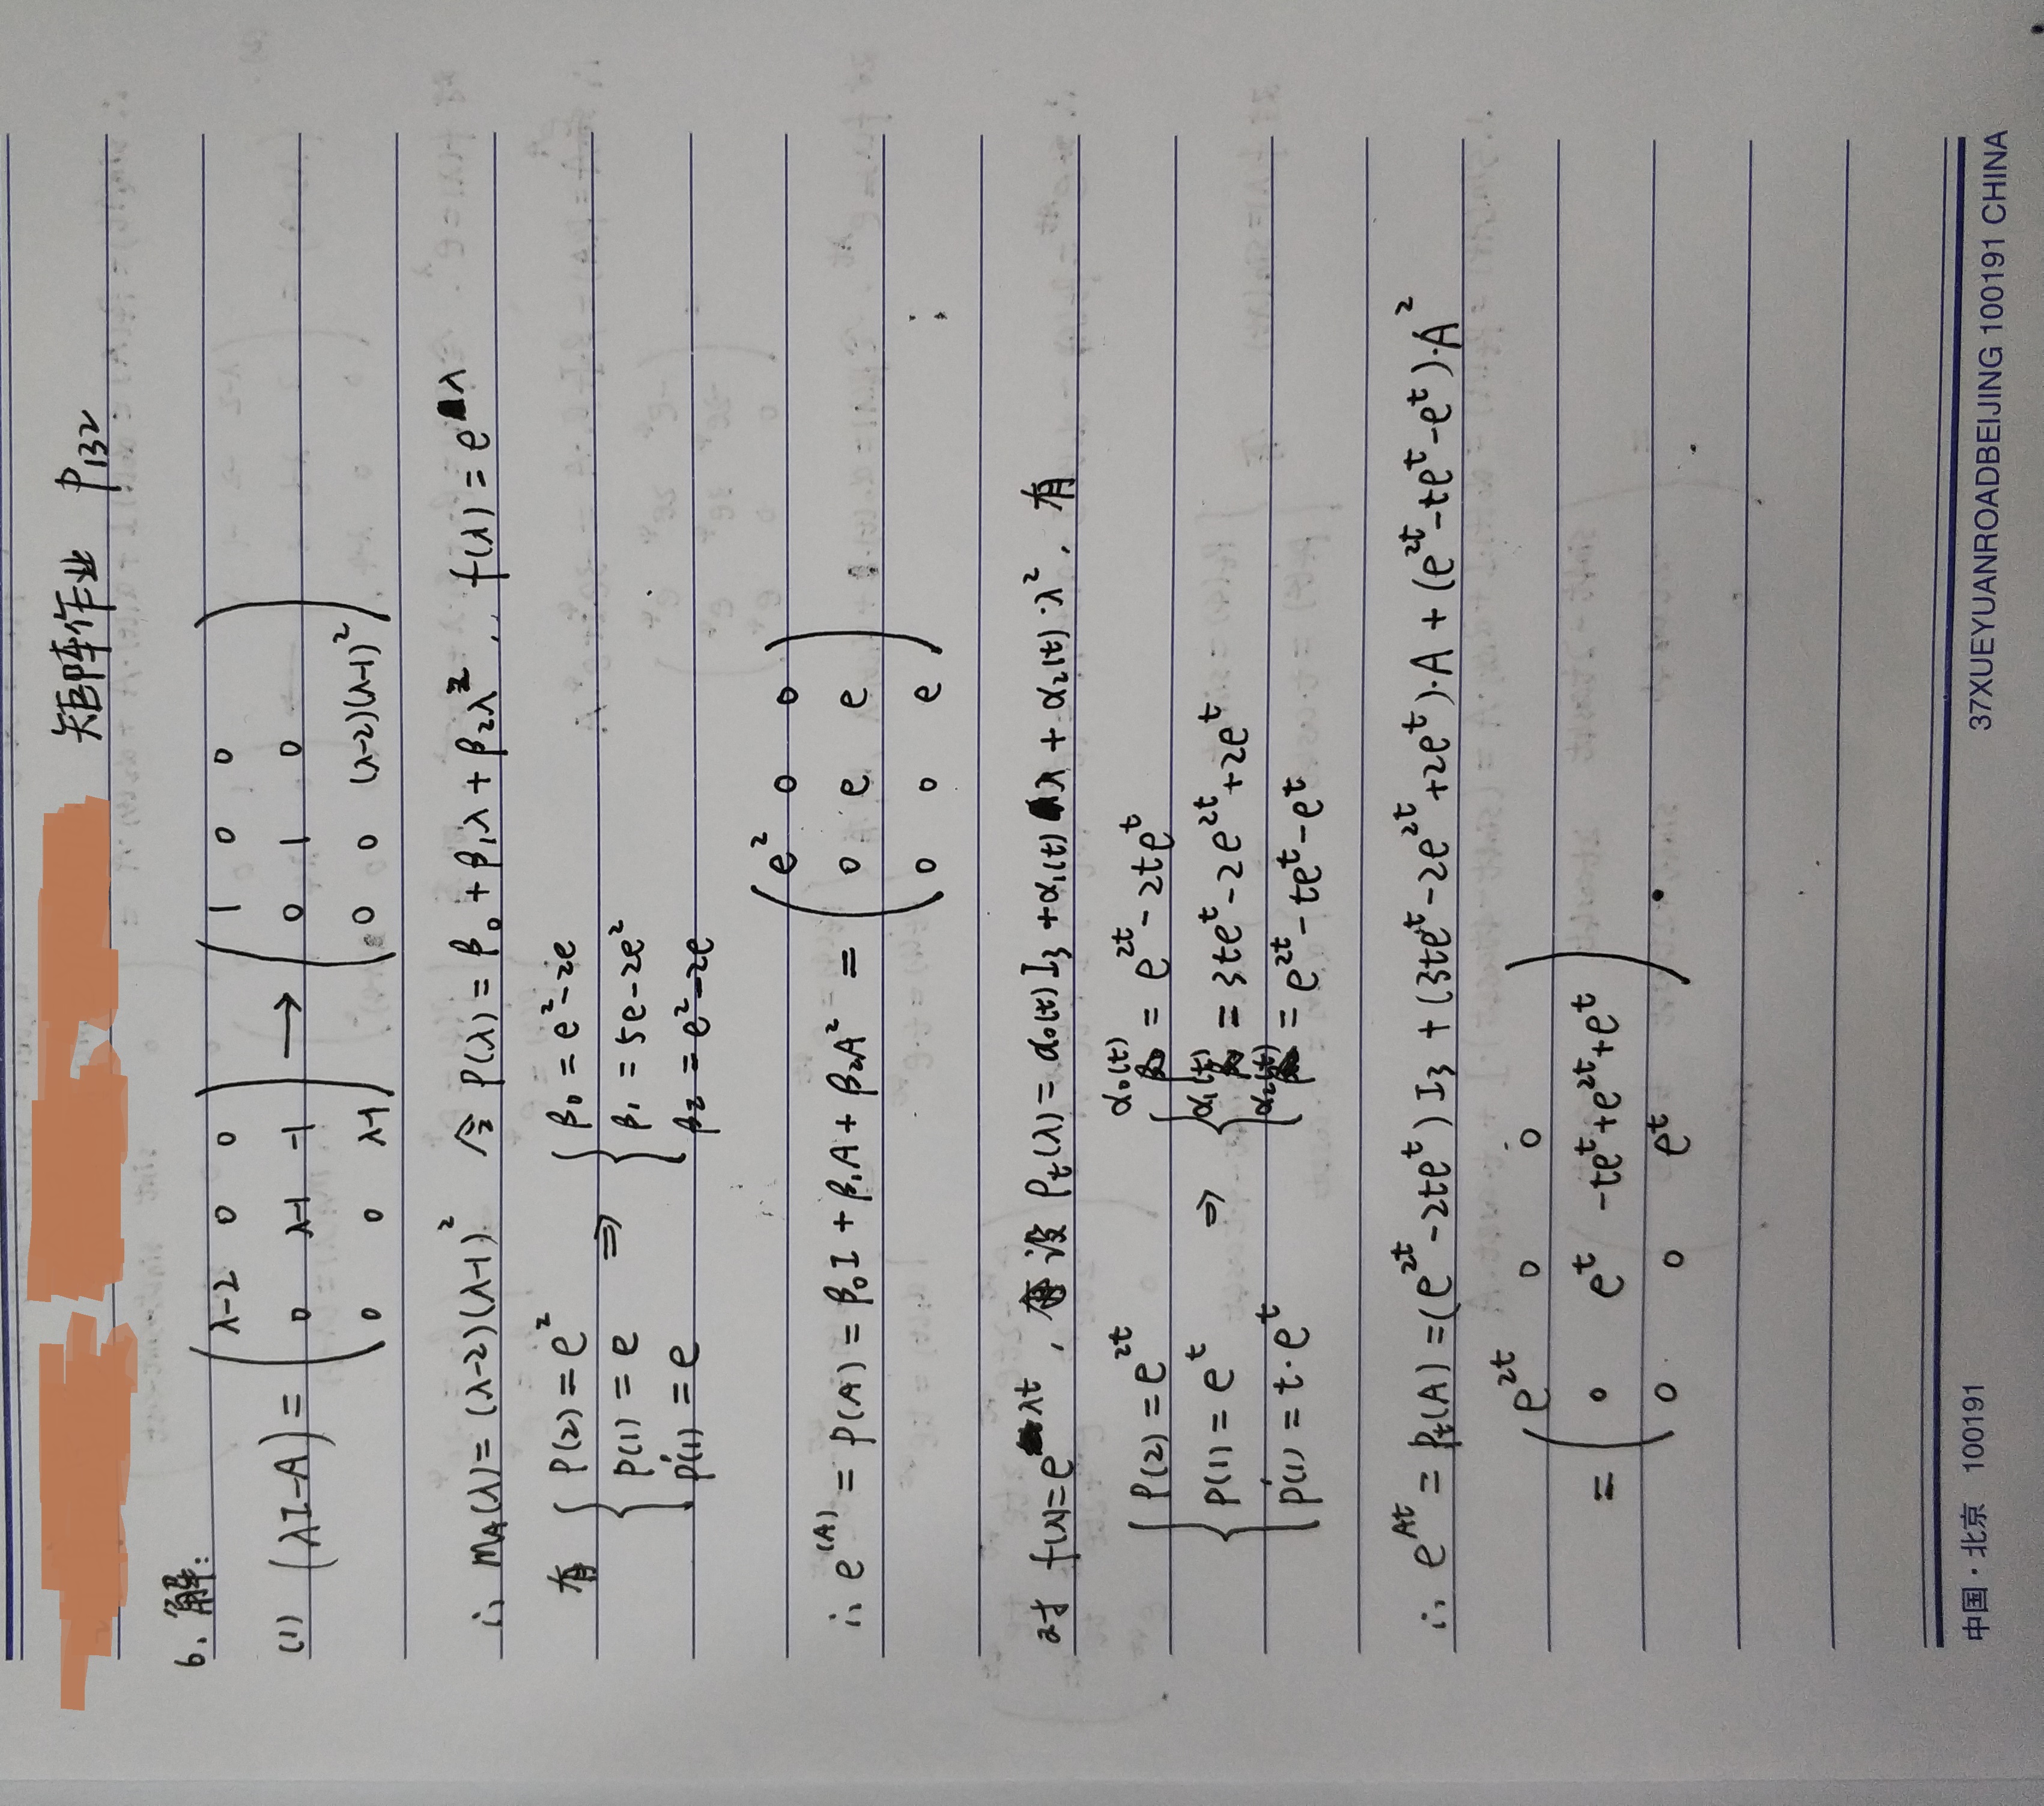 矩阵作业 P132
6. 解:
(1) (λI-A) = ( λ-2 0 0 ) → ( 1 0 0 )
0 λ-1 -1 0 1 0
0 0 λ-1 0 0 (λ-2)(λ-1)²
∴ mA(λ) = (λ-2)(λ-1)² 令 P(λ) = β₀ + β₁λ + β₂λ² , f(λ) = e^λ
有 { P(2) = e² ⇒ { β₀ = e²-2e
P(1) = e β₁ = 5e-2e²
P'(1) = e β₂ = e²-2e
∴ e^(A) = P(A) = β₀I + β₁A + β₂A² = ( e² 0 0 )
0 e e
0 0 e
对 f(λ) = e^λt , 设 Pt(λ) = α₀(t) I₃ + α₁(t) λ + α₂(t)·λ² , 有
{ P(2) = e^2t ⇒ { α₀(t) = e^2t - 2te^t
P(1) = e^t α₁(t) = 3te^t - 2e^2t + 2e^t
P'(1) = t·e^t α₂(t) = e^2t - te^t - e^t
∴ e^At = Pt(A) = (e^2t - 2te^t) I₃ + (3te^t - 2e^2t + 2e^t)·A + (e^2t - te^t - e^t)·A²
= ( e^2t 0 0 )
0 e^t -te^t + e^2t + e^t
0 0 e^t
中国·北京 100191 37XUEYUANROADBEIJING 100191 CHINA